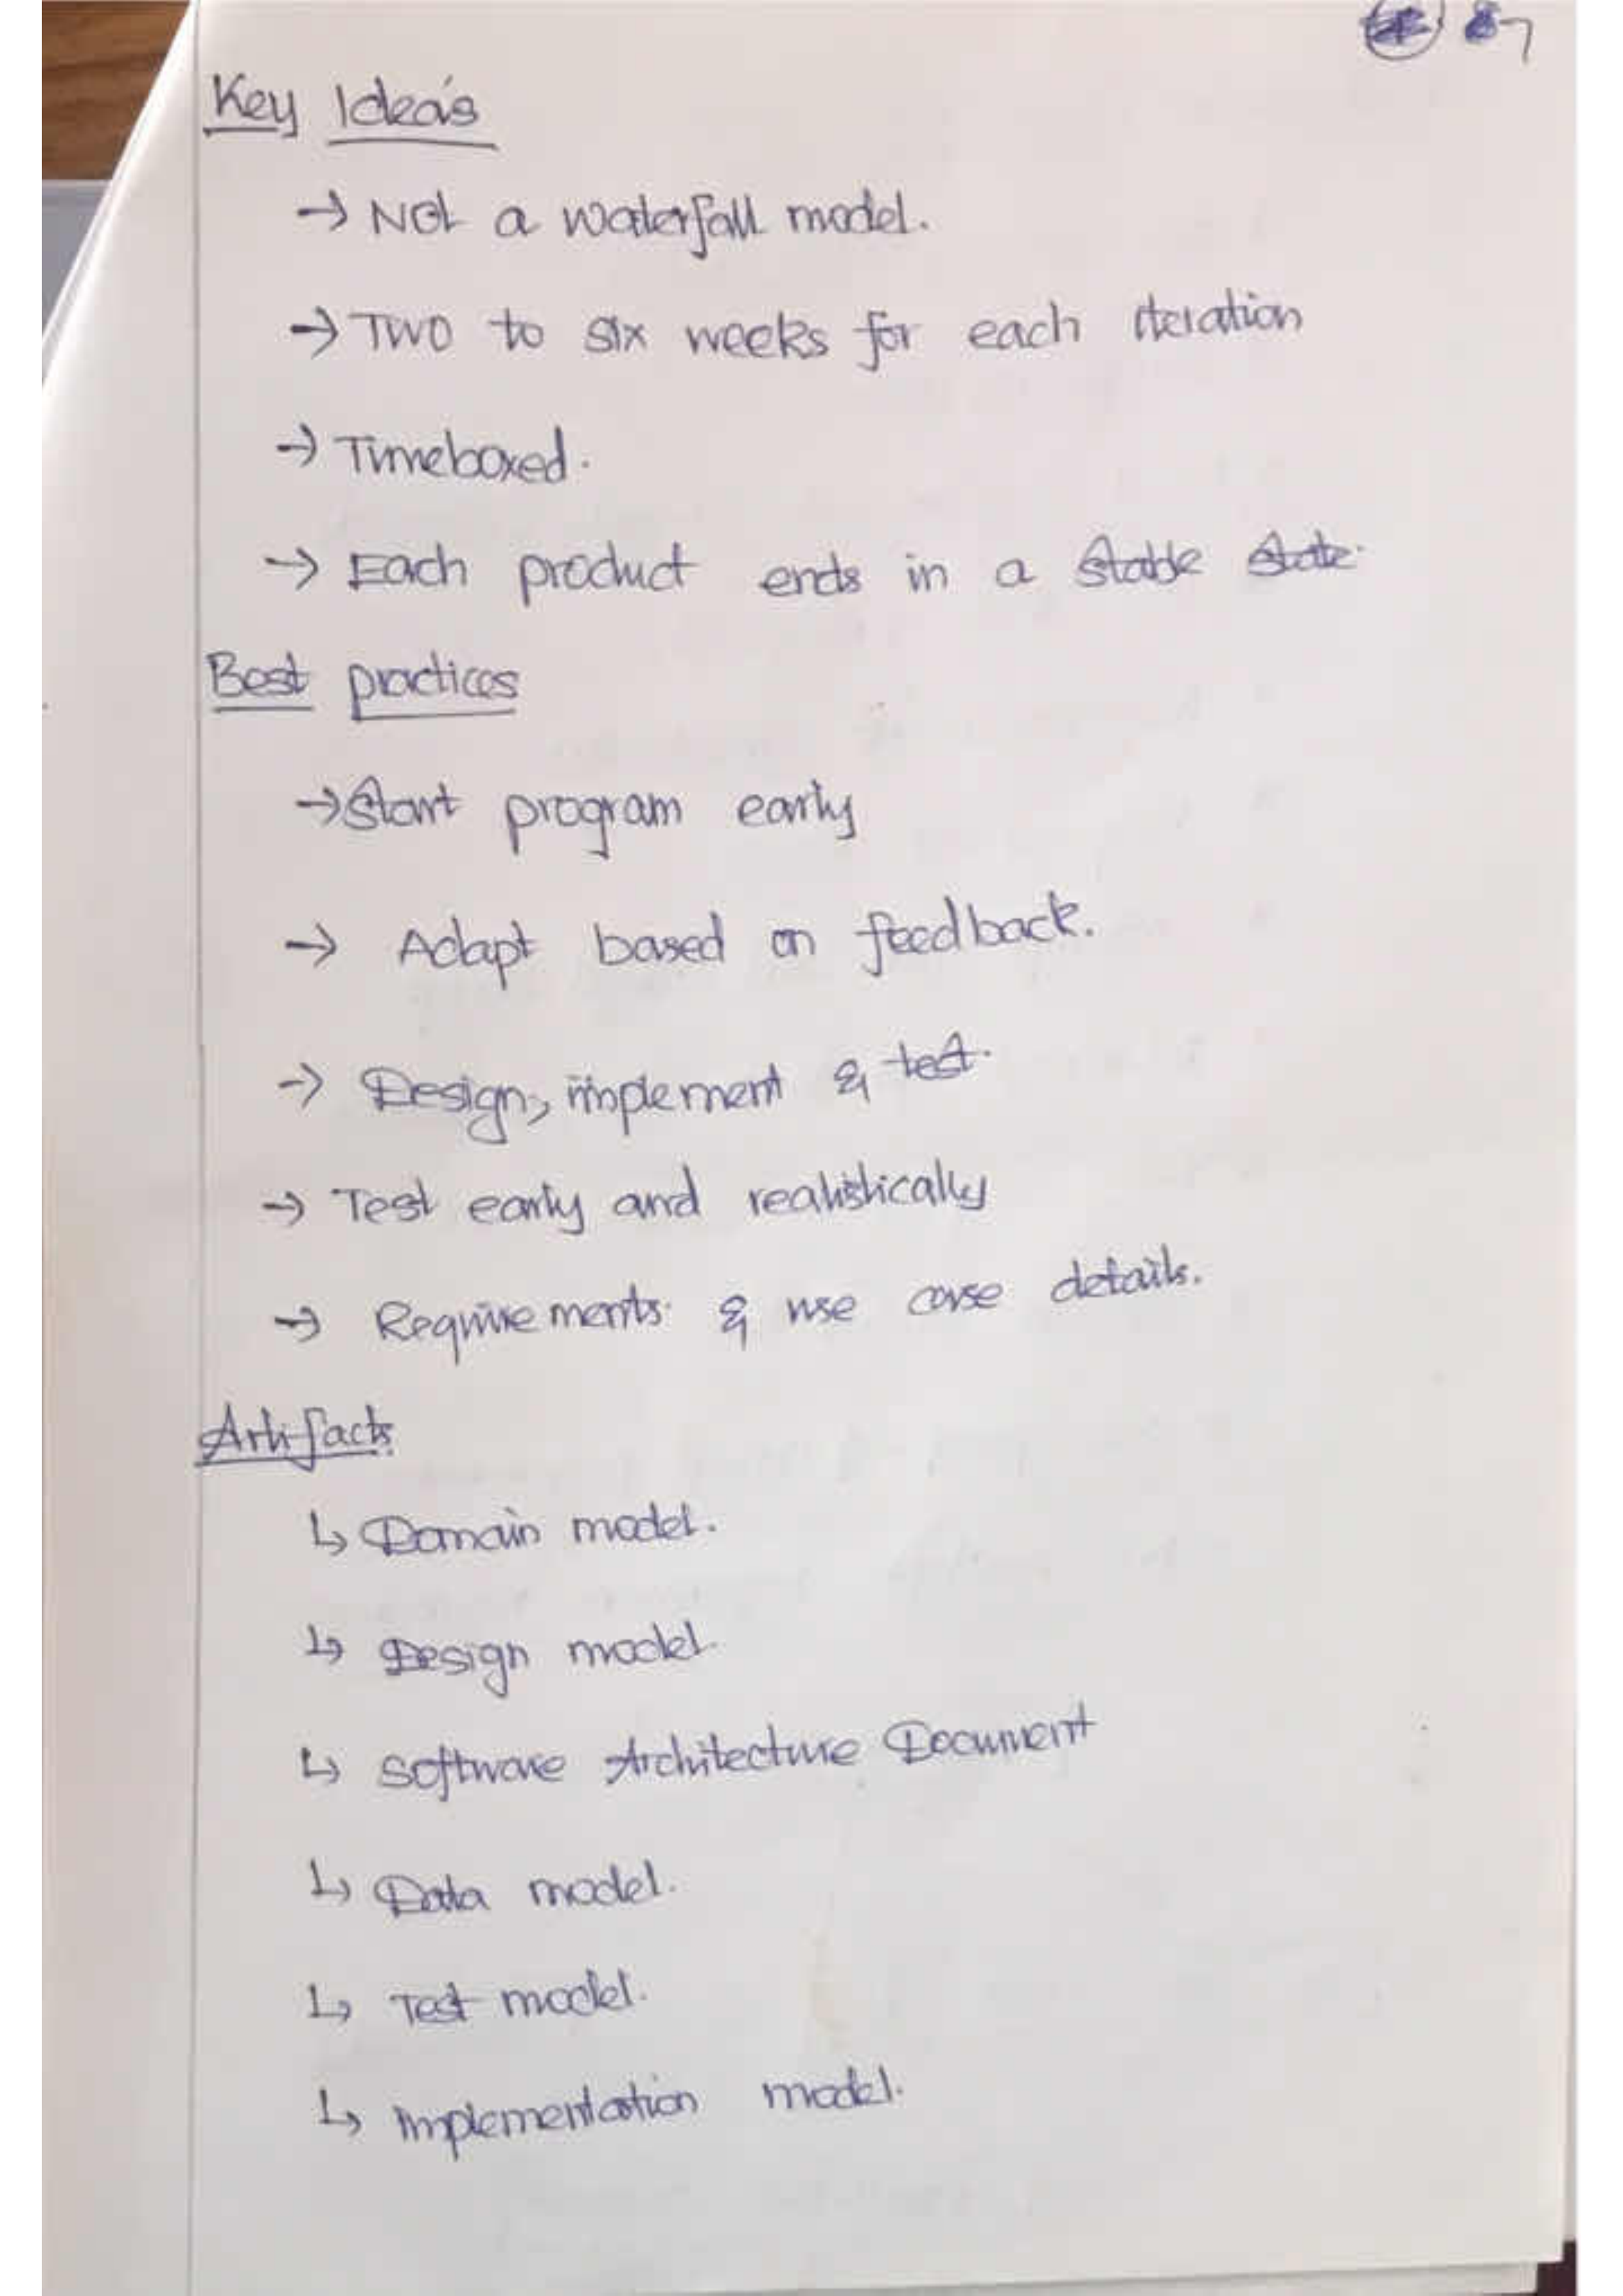 87
Key Idea's
→ Not a waterfall model.
→ Two to six weeks for each iteration
→ Timeboxed.
→ Each product ends in a stable state.
Best practices
→ Start program early
→ Adapt based on feedback.
→ Design, implement & test.
→ Test early and realistically
→ Requirements & use case details.
Artifacts:
↳ Domain model.
↳ Design model.
↳ Software Architecture Document
↳ Data model.
↳ Test model.
↳ Implementation model.